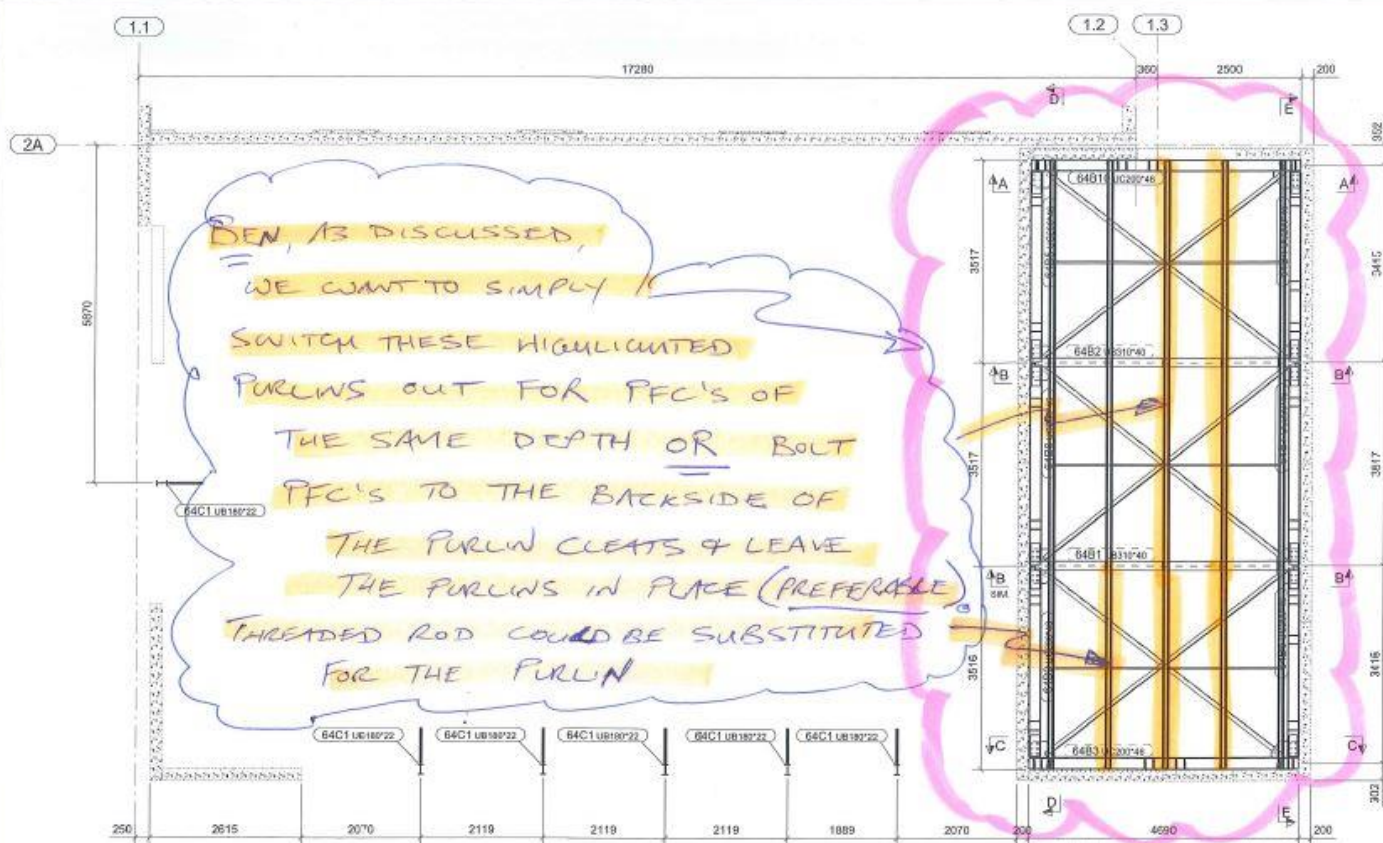 1.1
1.2
1.3
17280
360
2500
200
D
E
2A
352
64B10 UC200*46
A
A
BEN, AS DISCUSSED,
WE WANT TO SIMPLY
SWITCH THESE HIGHLIGHTED
PURLINS OUT FOR PFC'S OF
THE SAME DEPTH OR BOLT
PFC'S TO THE BACKSIDE OF
THE PURLIN CLEATS & LEAVE
THE PURLINS IN PLACE (PREFERABLE)
THREADED ROD COULD BE SUBSTITUTED
FOR THE PURLIN
5870
3517
3415
64B2 UB310*40
B
B
3517
3617
64C1 UB180*22
64B1 UB310*40
B
SIM.
B
3516
3416
64C1 UB180*22
64C1 UB180*22
64C1 UB180*22
64C1 UB180*22
64C1 UB180*22
C
64B3 UC200*46
C
302
D
E
250
2615
2070
2119
2119
2119
1889
2070
200
4690
200